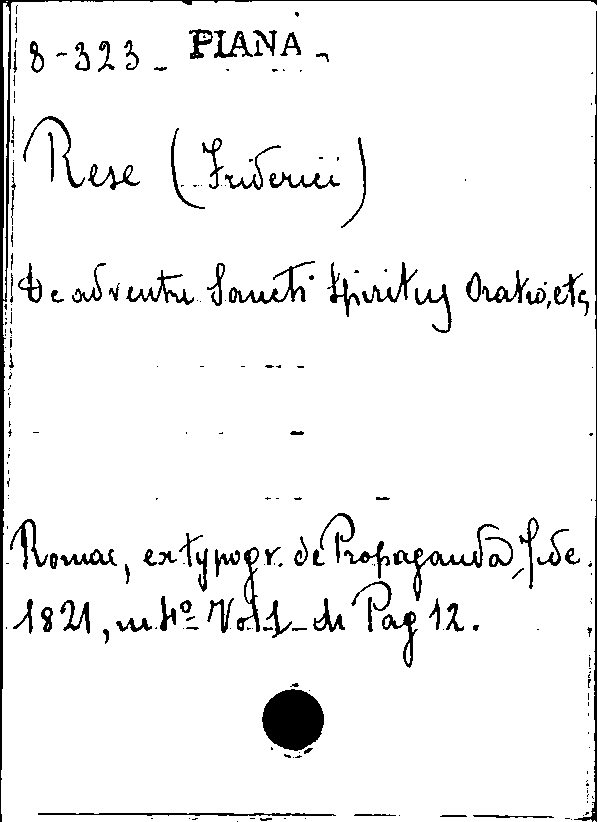 8-323- PIANA -
Rese (Friderici)
De adventu Sancti Spiritus Oratio, etc,
Romae, ex typogr. de Propaganda Fide.
1821, in 4º Vol 1 - di Pag 12.